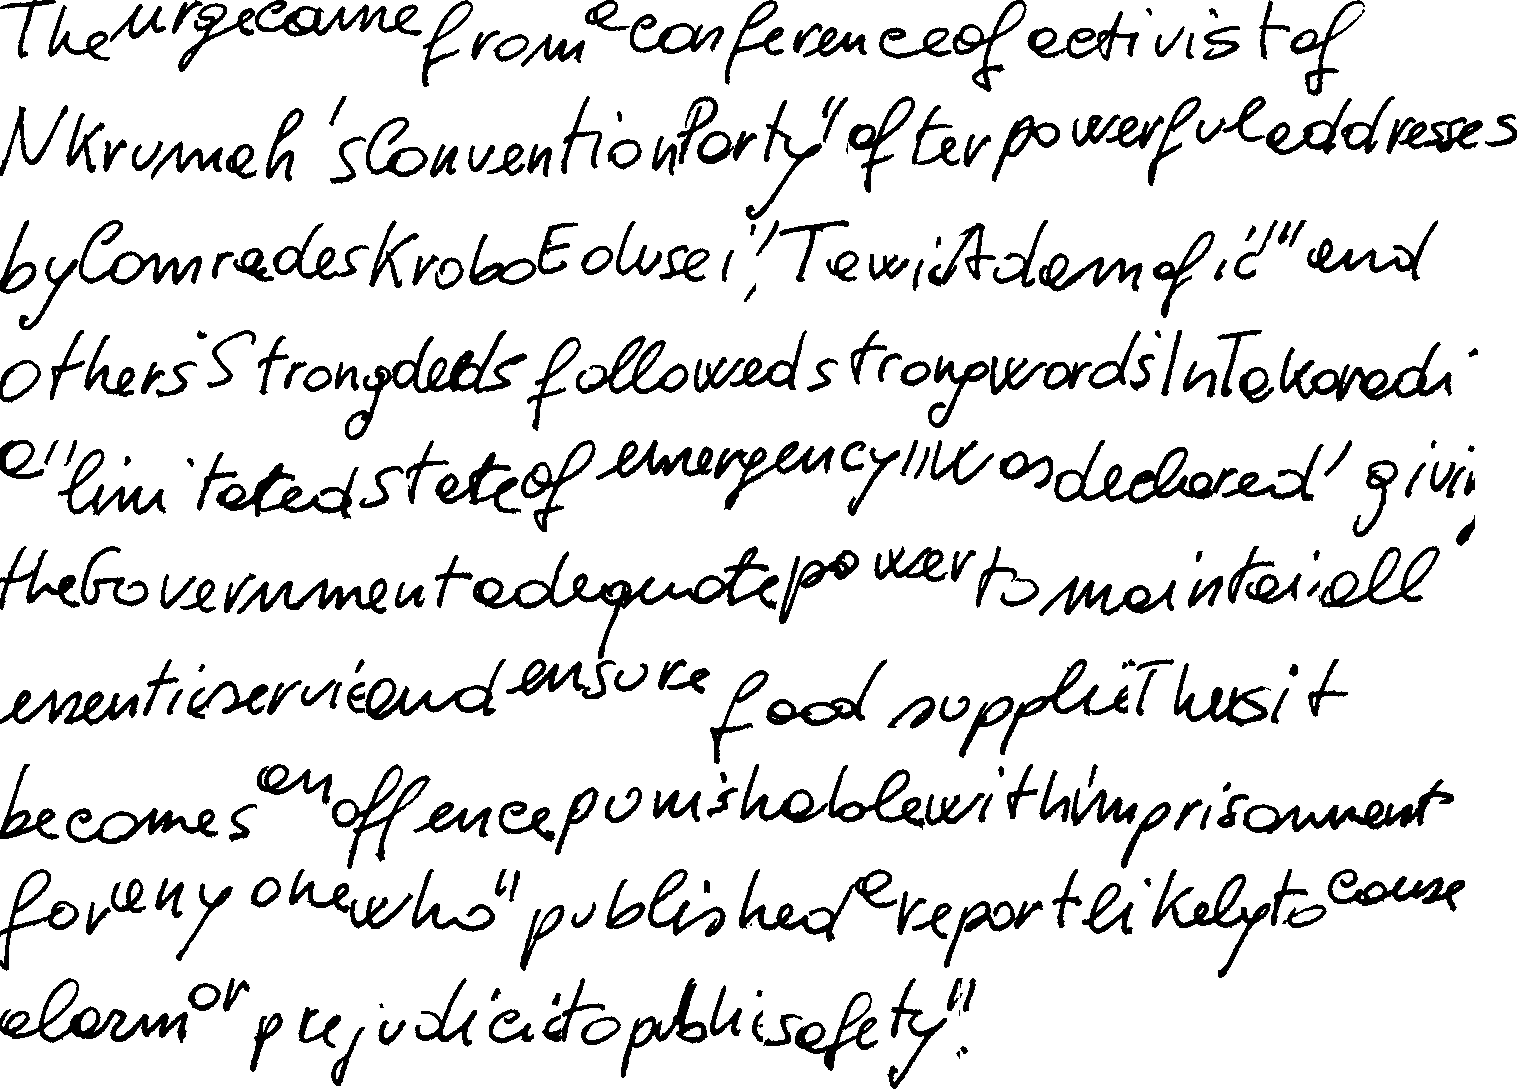 The urge came from a conference of activist of
Nkrumah's Convention Party" after powerful addresses
by Comrades Krobo Edusei, Tawia Adamafio and
others. Strong deeds followed strong words. In Takoradi
a "limitated state of emergency" was declared, giving
the Government adequate power to maintain all
essential service and ensure food supplies. Thus it
becomes an offence punishable with imprisonment
for any one who "published a report likely to cause
alarm or prejudicial to public safety".